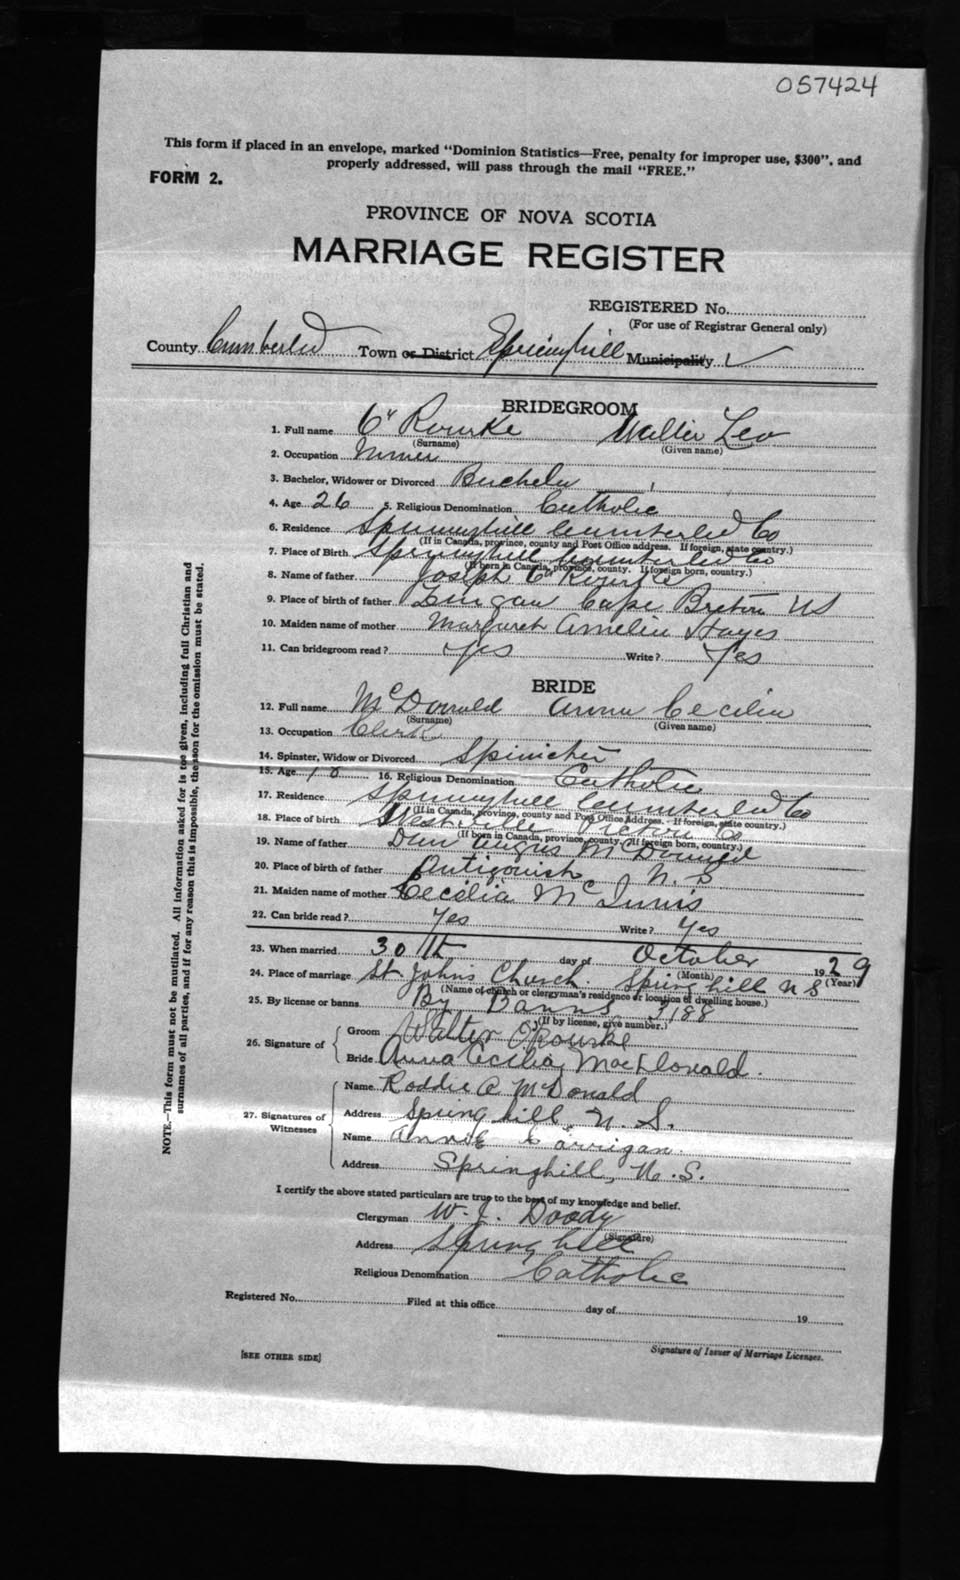 057424
This form if placed in an envelope, marked "Dominion Statistics—Free, penalty for improper use, $300", and
properly addressed, will pass through the mail "FREE."
FORM 2.
PROVINCE OF NOVA SCOTIA
MARRIAGE REGISTER
REGISTERED No.
(For use of Registrar General only)
County Cumberland Town or District Springhill Municipality
BRIDEGROOM
1. Full name O'Rourke Walter Leo
(Surname) (Given name)
2. Occupation Miner
3. Bachelor, Widower or Divorced Bachelor
4. Age 26 5. Religious Denomination Catholic
6. Residence Springhill Cumberland Co
(If in Canada, province, county and Post Office address. If foreign, state country.)
7. Place of Birth Springhill Cumberland Co
(If born in Canada, province, county. If foreign born, country.)
8. Name of father Joseph O'Rourke
9. Place of birth of father Lingan Cape Breton NS
10. Maiden name of mother Margaret Amelia Hayes
11. Can bridegroom read? Yes Write? Yes
BRIDE
12. Full name McDonald Anna Cecilia
(Surname) (Given name)
13. Occupation Clerk
14. Spinster, Widow or Divorced Spinster
15. Age 18 16. Religious Denomination Catholic
17. Residence Springhill Cumberland Co
(If in Canada, province, county and Post Office Address. If foreign, state country.)
18. Place of birth Westville Pictou Co
(If born in Canada, province, county. If foreign born, country.)
19. Name of father Dan Angus McDonald
20. Place of birth of father Antigonish N.S
21. Maiden name of mother Cecelia McInnis
22. Can bride read? Yes Write? Yes
23. When married 30th day of October 1929
(Month) (Year)
24. Place of marriage St Johns Church Springhill NS
(Name of church or clergyman's residence or location of dwelling house.)
25. By license or banns By Banns 3188
(If by license, give number.)
26. Signature of
Groom Walter O'Rourke
Bride Anna Cecilia MacDonald.
27. Signatures of Witnesses
Name Roddie A McDonald
Address Springhill, N. S.
Name Annie Corrigan.
Address Springhill, N. S.
I certify the above stated particulars are true to the best of my knowledge and belief.
Clergyman W. J. Doody
(Signature)
Address Springhill
Religious Denomination Catholic
Registered No. Filed at this office day of 19
Signature of Issuer of Marriage Licenses.
[SEE OTHER SIDE]
NOTE.—This form must not be mutilated. All information asked for is to be given, including full Christian and
surnames of all parties, and if for any reason this is impossible, the reason for the omission must be stated.